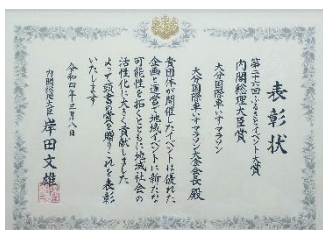 表彰状
第二十六回ふるさとイベント大賞
内閣総理大臣賞
大分国際車いすマラソン
大分国際車いすマラソン大会会長 殿
貴団体が開催したイベントは優れた
企画と運営で地域イベントに新たな
可能性を拓くとともに地域社会の
活性化に大きく貢献しました
よって頭書の賞を贈りこれを表彰
いたします
令和四年三月八日
内閣総理大臣 岸田文雄